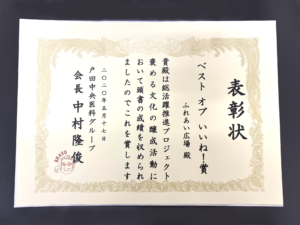 表彰状
ベスト オブ いいね!賞
ふれあい広場 殿
貴殿は総活躍推進プロジェクト
褒める文化の醸成活動に
おいて頭書の成績を収められ
ましたのでこれを賞します
二〇二〇年五月十七日
戸田中央医科グループ
会長 中村隆俊